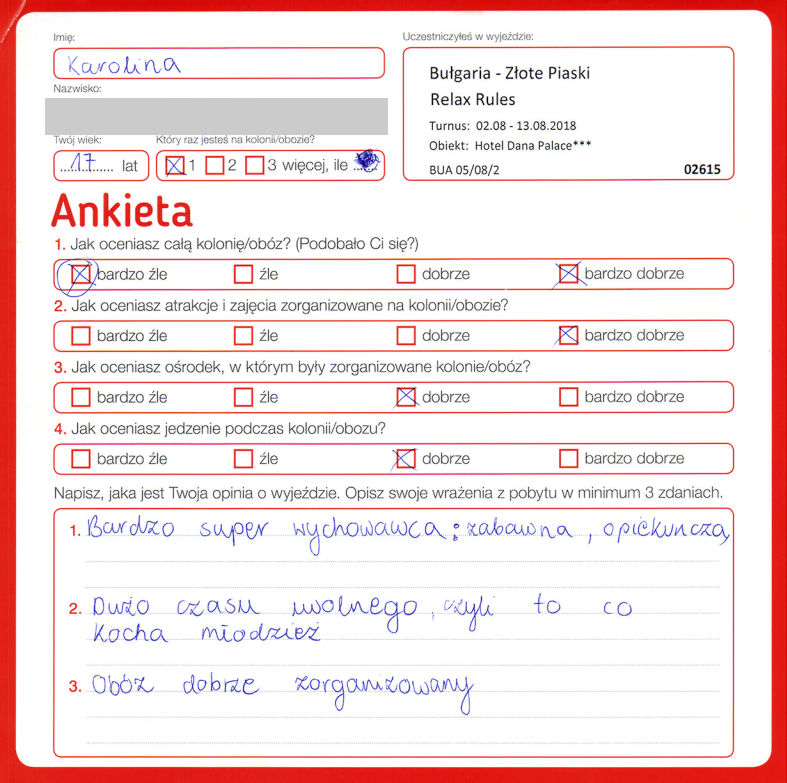 Imię:
Karolina
Nazwisko:
Twój wiek:
Który raz jesteś na kolonii/obozie?
17 lat
1 2 3 więcej, ile
Uczestniczyłeś w wyjeździe:
Bułgaria - Złote Piaski
Relax Rules
Turnus: 02.08 - 13.08.2018
Obiekt: Hotel Dana Palace***
BUA 05/08/2 02615
Ankieta
1. Jak oceniasz całą kolonię/obóz? (Podobało Ci się?)
bardzo źle źle dobrze bardzo dobrze
2. Jak oceniasz atrakcje i zajęcia zorganizowane na kolonii/obozie?
bardzo źle źle dobrze bardzo dobrze
3. Jak oceniasz ośrodek, w którym były zorganizowane kolonie/obóz?
bardzo źle źle dobrze bardzo dobrze
4. Jak oceniasz jedzenie podczas kolonii/obozu?
bardzo źle źle dobrze bardzo dobrze
Napisz, jaka jest Twoja opinia o wyjeździe. Opisz swoje wrażenia z pobytu w minimum 3 zdaniach.
1. Bardzo super wychowawca: zabawna, opiekuńcza,
2. Dużo czasu wolnego, czyli to co
kocha młodzież
3. Obóz dobrze zorganizowany